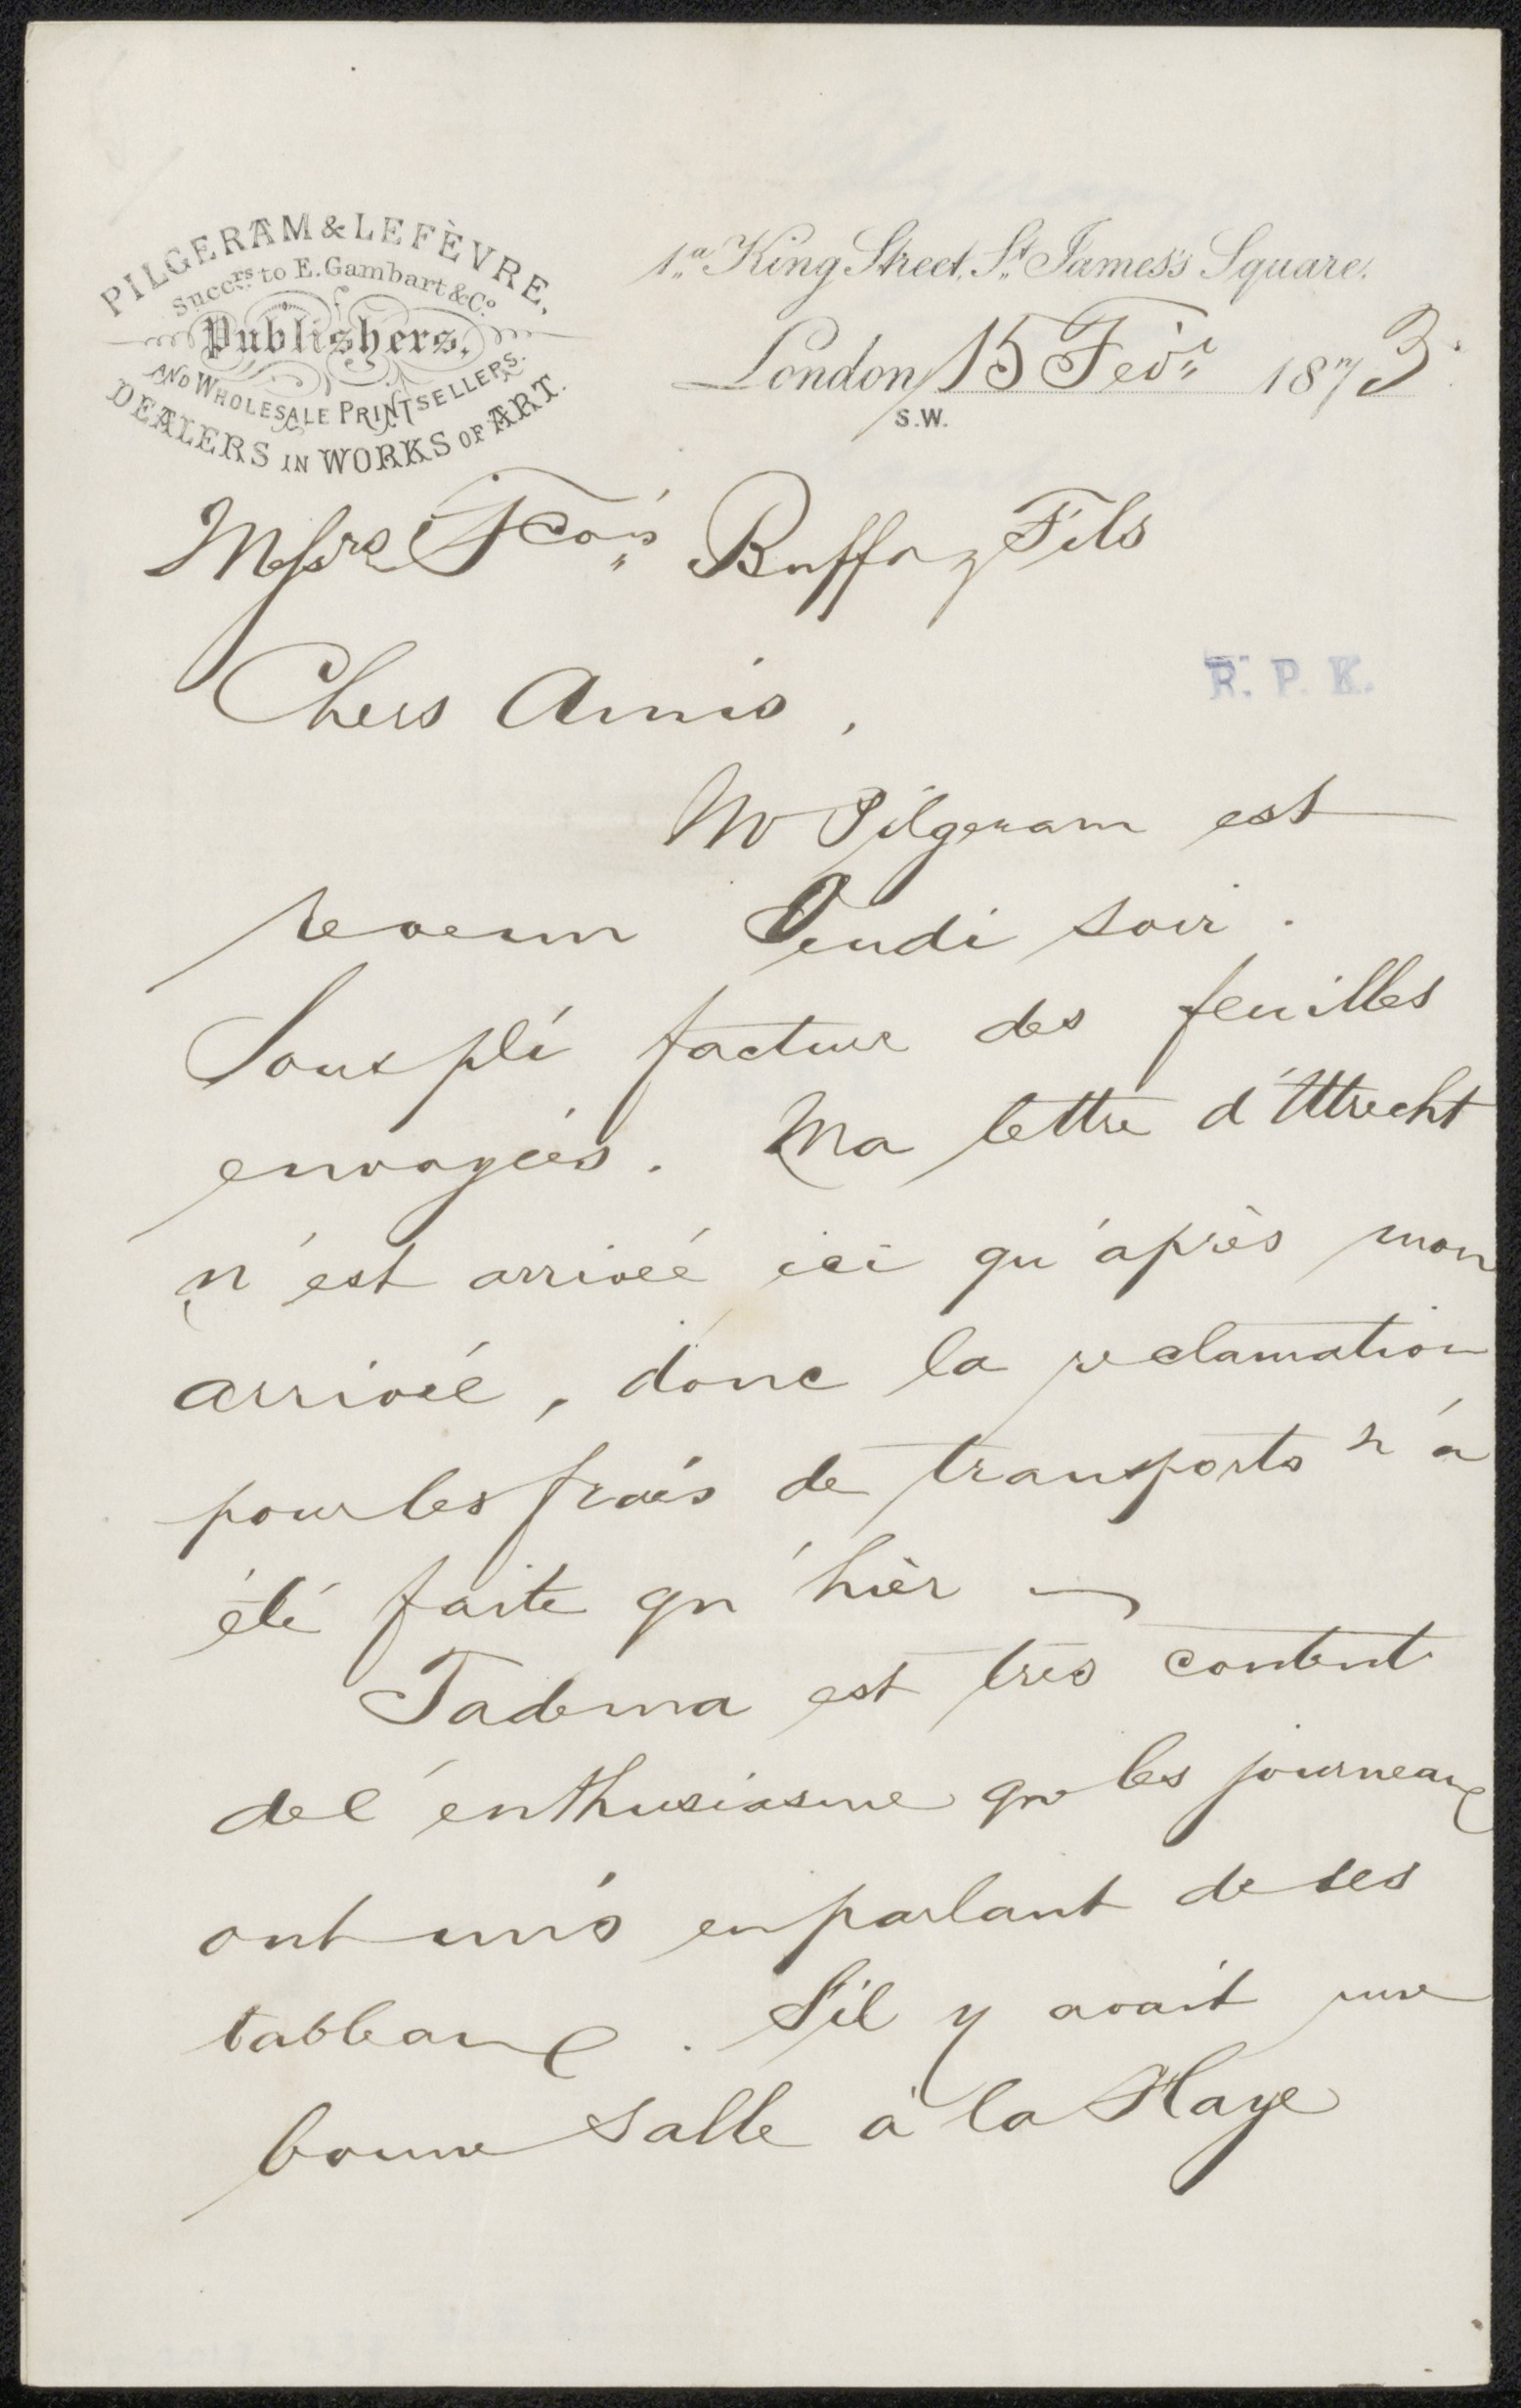 PILGERAM & LEFÈVRE,
Succrs to E. Gambart & Co.
Publishers,
AND WHOLESALE PRINTSELLERS.
DEALERS IN WORKS OF ART.
1a King Street, St James's Square.
London 15 Fevr 1873.
S.W.
Messrs Fcois Buffa & Fils
Chers Amis,
R. P. K.
Mr Pilgeram est
revenu Jeudi soir.
Sous pli facture des feuilles
envoyées. Ma lettre d'Utrecht
n'est arrivée ici qu'après mon
arrivée, donc la reclamation
pour les frais de transports n'a
été faite qu'hièr —
Tadema est très content
de l'enthusiasme que les journeaux
ont mis en parlant de ses
tableaux. S'il y avait une
bonne salle à la Haye